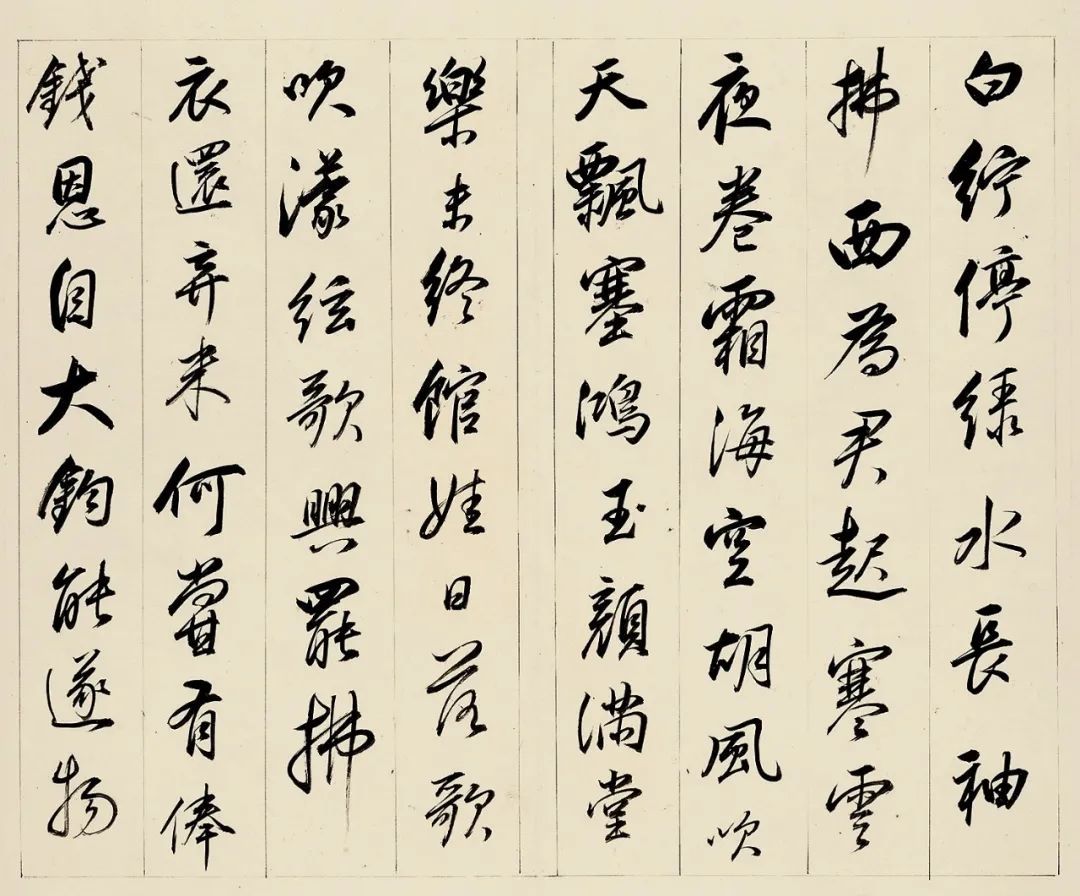 白紵停綠水長袖
拂面為君起寒雲
夜卷霜海空胡風吹
天飄塞鴻玉顏滿堂
樂未終館娃日落歌
吹濛絃歌興罷拂
衣還弃來何嘗有俸
錢恩自大鈞能遂物